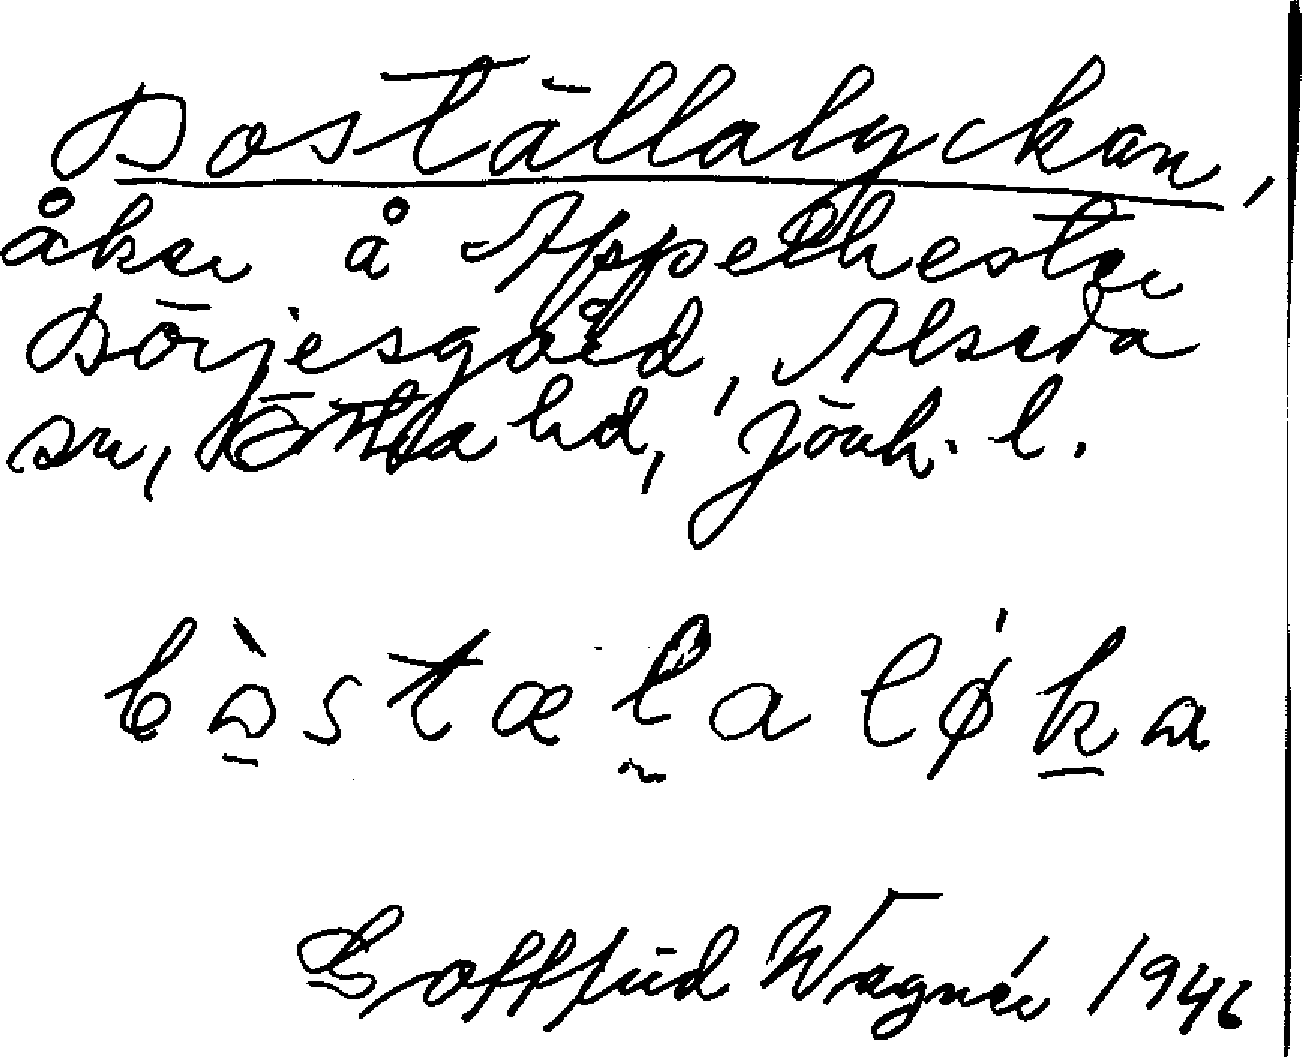 Boställalyckan,
åker å Äppelhester
Börjesgård, Alseda
sn, Östra hd, Jönk. l.
bòstæla løka
Gottfrid Wagnér 1946